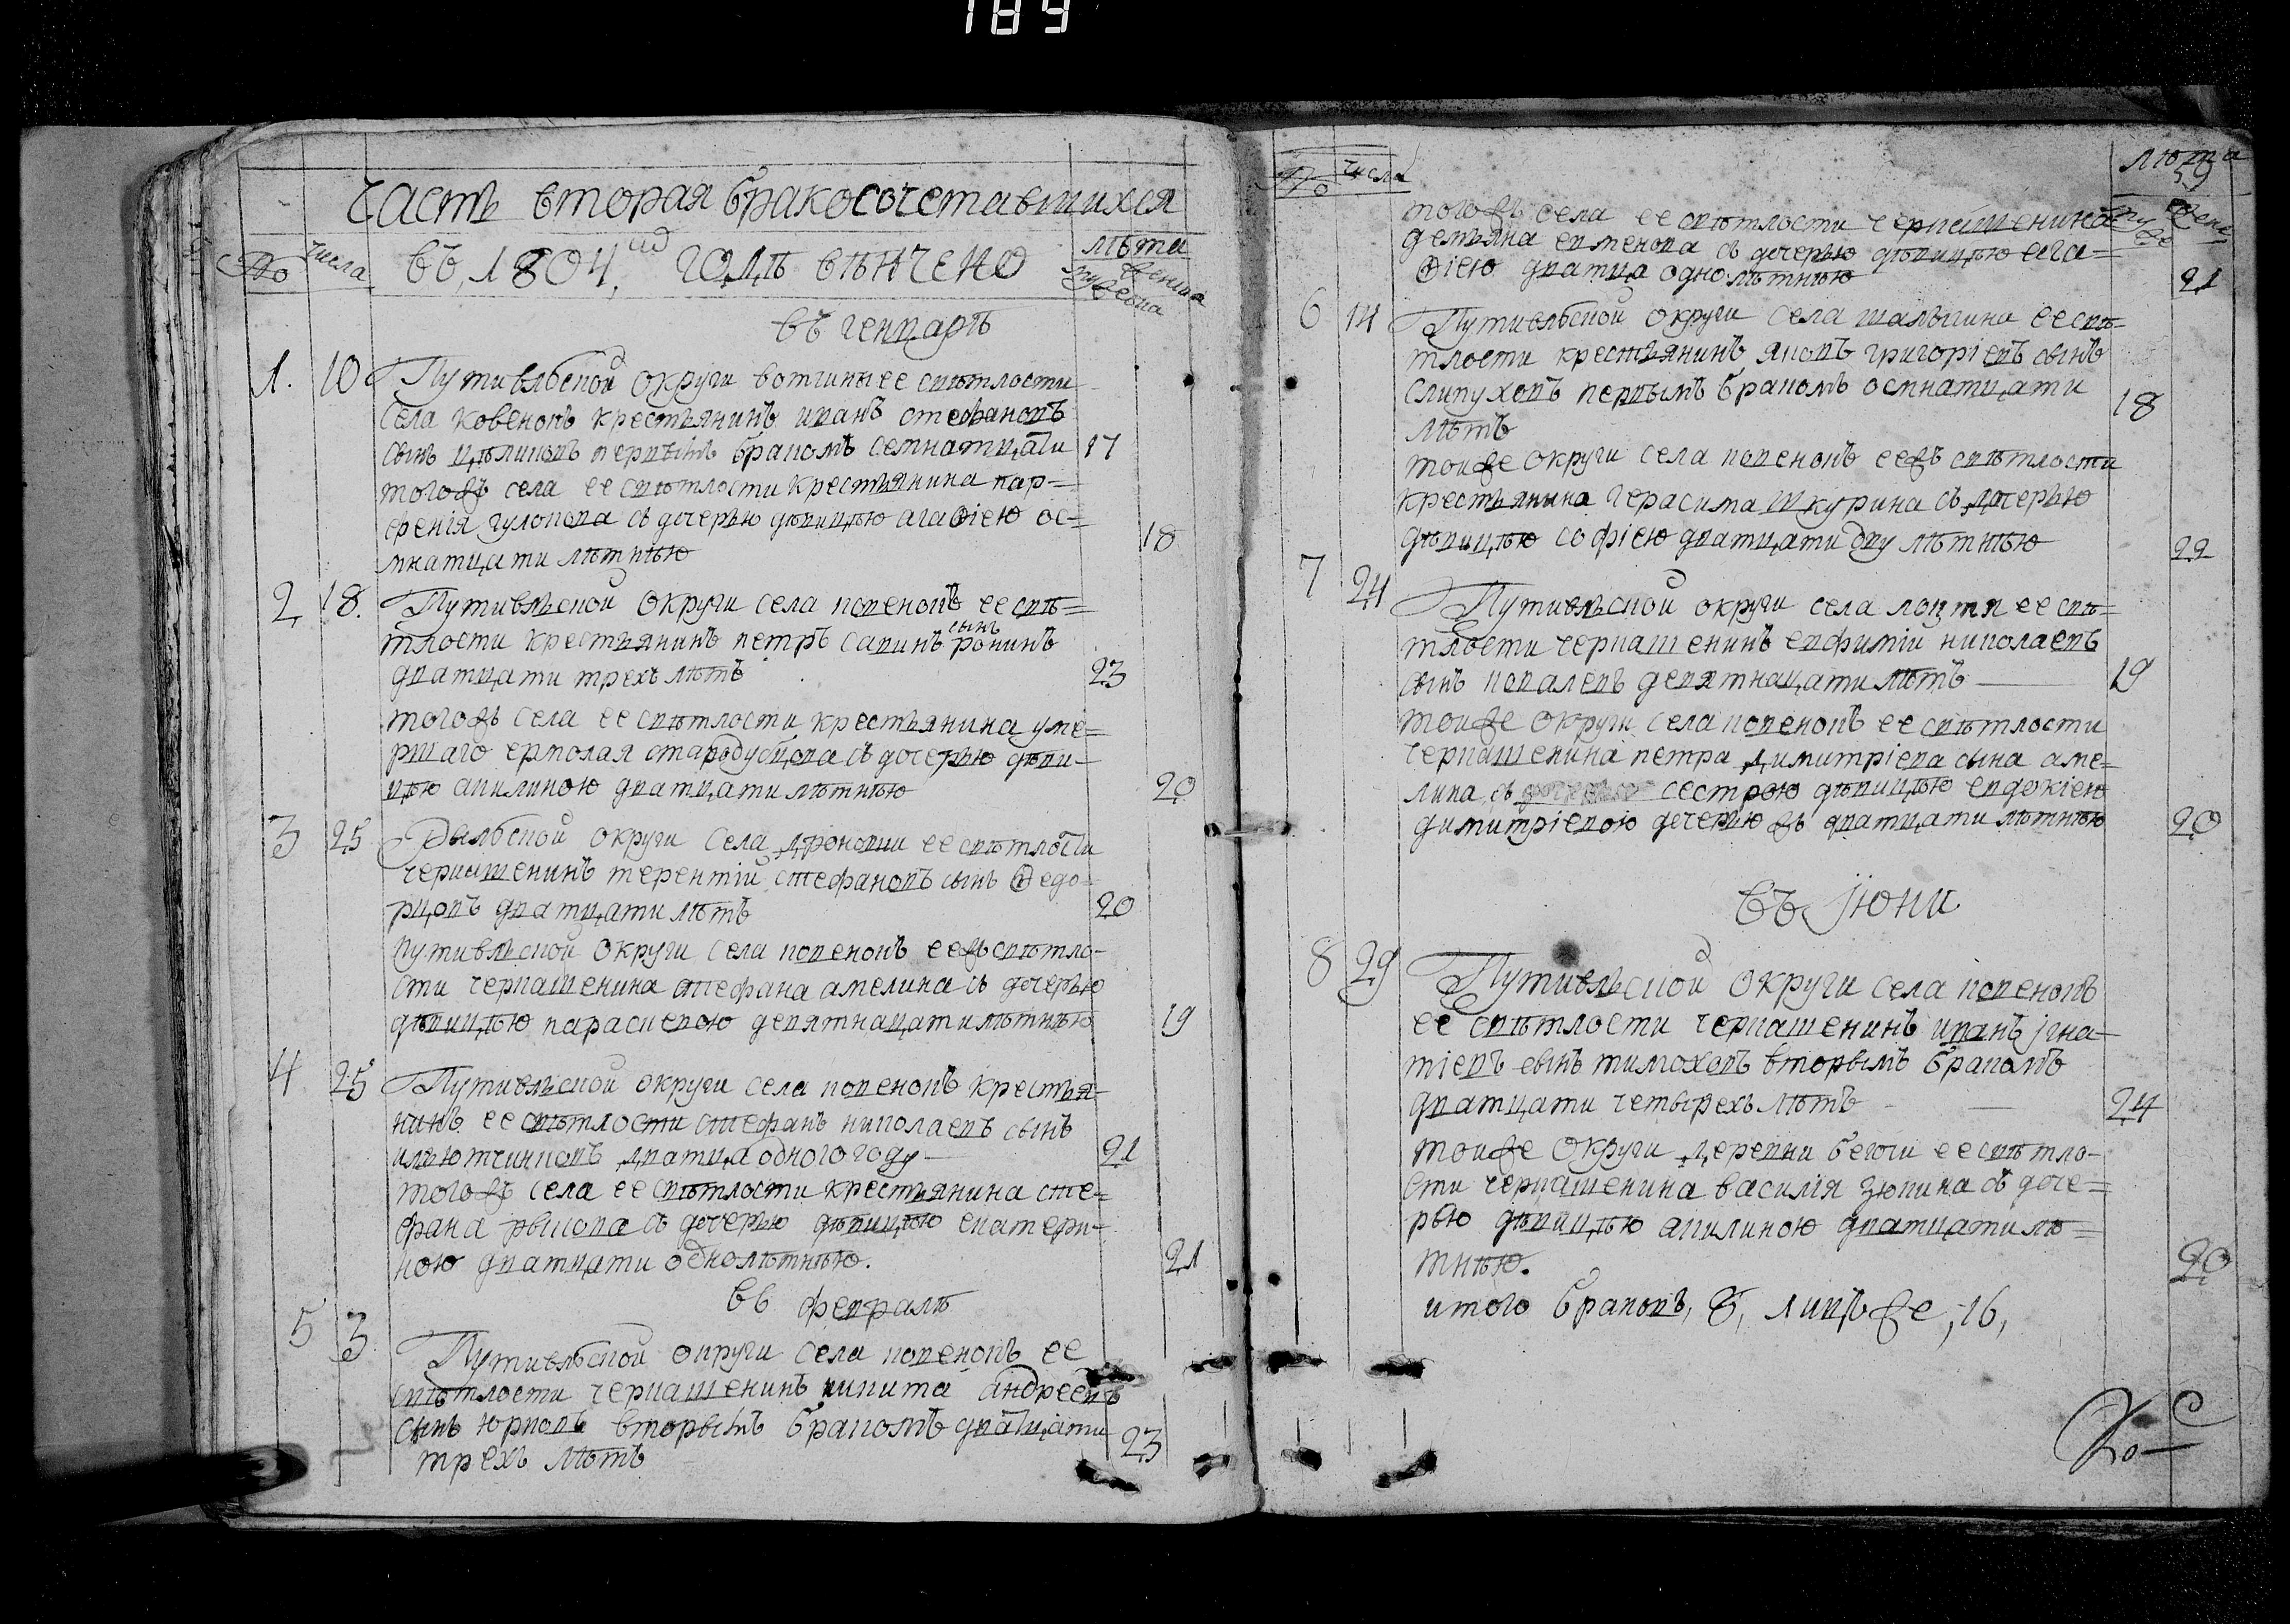 189
часть вторая бракосочетавшихся
№ числа въ, 1804,м годѣ вѣнчено лѣта
мужеска женска
въ генварѣ
1. 10 Путивльской округи вотчины ее свѣтлости
села ковенокъ крестьянинъ иванъ стефановъ
сынъ цѣликовъ первымъ бракомъ семнатцати 17
тогожъ села ее свѣтлости крестьянина пар=
фенія гулопова съ дочерью дѣвицѣю агаѳіею ос=
мнатцати лѣтнѣю 18
2 18. Путивльской округи села ковенокъ ее свѣ=
тлости крестьянинъ петръ савинъ сынъ ронинъ
дватцати трехъ лѣтъ 23
тогожъ села ее свѣтлости крестьянина уме=
ршаго ермолая стародубцова съ дочерью дѣви=
цѣю акилиною дватцати лѣтнѣю 20
3 25 Рыльской округи села дроновки ее свѣтлости
черкашенинъ терентій стефановъ сынъ ѳедо=
рцовъ дватцати лѣтъ 20
путивльской округи села ковенокъ еежъ свѣтло-
сти черкашенина стефана амелина съ дочерью
дѣвицѣю параскевою девятнацати лѣтнѣю 19
4 25 Путивльской округи села ковенокъ крестья-
нинъ ее свѣтлости стефанъ николаевъ сынъ
илютчинковъ дватца одного году 21
тогожъ села ее свѣтлости крестьянина сте=
фана рыкова съ дочерью дѣвицѣю екатери-
ною дватцати однолѣтнѣю. 21
въ февралѣ
5 3 Путивльской округи села ковенокъ ее
свѣтлости черкашенинъ никита андреевъ
сынъ юрковъ вторымъ бракомъ дватцати
трехъ лѣтъ 23
№ числа лѣта
59
тогожъ села ее свѣтлости черкашенина
демьяна семенова съ дочерью дѣвицѣю ага=
ѳіею дватца однолѣтнѣю 21
6 14 Путивльской округи села шалыгина ее свѣ-
тлости крестьянинъ яковъ григоріевъ сынъ
слипуховъ первымъ бракомъ осмнатцати
лѣтъ 18
тоиже округи села ковенокъ еежъ свѣтлости
крестьянина герасима шкурина съ дочерью
дѣвицѣю софіею дватцати дву лѣтнѣю 22
7 24 Путивльской округи села локтя ее свѣ=
тлости черкашенинъ евфимій николаевъ
сынъ ковалевъ девятнацати лѣтъ 19
тоиже округи села ковенокъ ее свѣтлости
черкашенина петра димитріева сына аме=
лина съ сестрою дѣвицѣю евдокіею
димитріевою дочерью жъ дватцати лѣтнѣю 20
въ іюни
8 29 Путивльской округи села ковенокъ
ее свѣтлости черкашенинъ иванъ игна-
тіевъ сынъ тимоховъ вторымъ бракомъ
дватцати четырехъ лѣтъ 24
тоиже округи деревни бегочи ее свѣтло-
сти черкашенина василія зюкина съ доче=
рью дѣвицѣю акилиною дватцати лѣ=
тнѣю. 20
итого браковъ, 8, лицъ же, 16,